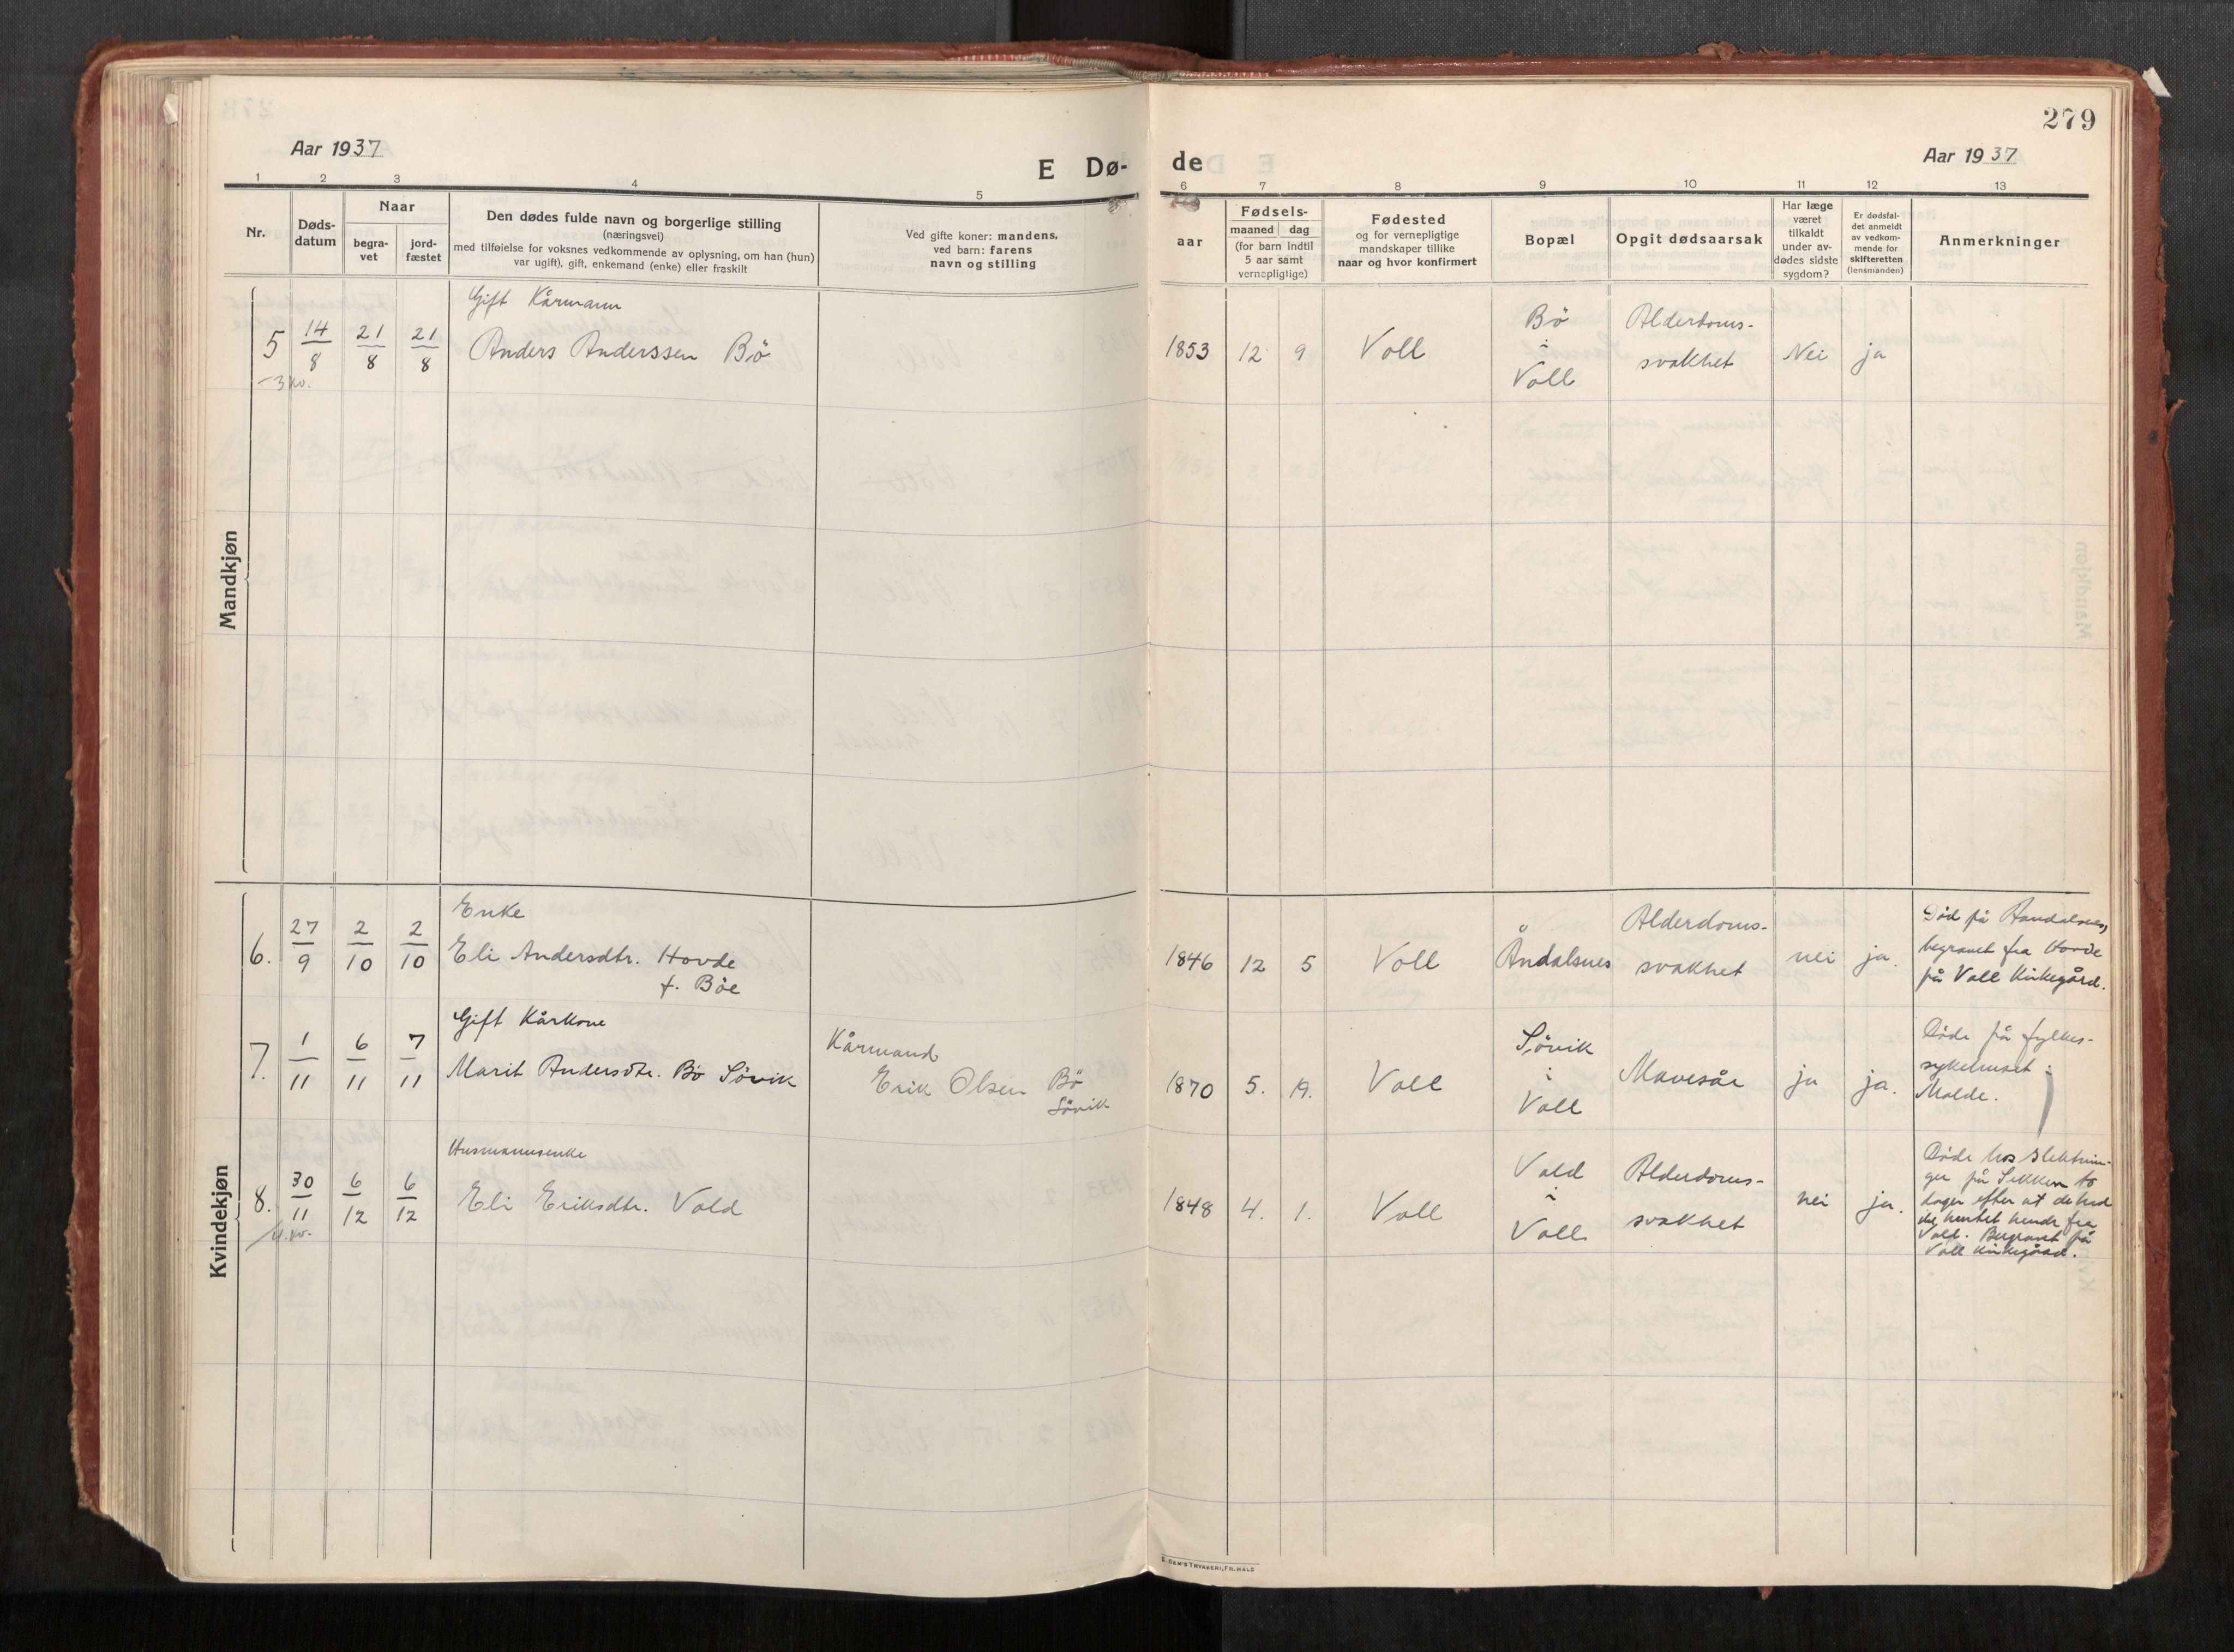 279
Aar 1937
E Dø-
de
Aar 1937
1 2 3 4 5 6 7 8 9 10 11 12 13
Nr.
Døds-
datum
Naar
begra-
vet
jord-
fæstet
Den dødes fulde navn og borgerlige stilling
(næringsvei)
med tilføielse for voksnes vedkommende av oplysning, om han (hun)
var ugift), gift, enkemand (enke) eller fraskilt
Ved gifte koner: mandens,
ved barn: farens
navn og stilling
aar
Fødsels-
maaned dag
(for barn indtil
5 aar samt
vernepligtige)
Fødested
og for vernepligtige
mandskaper tillike
naar og hvor konfirmert
Bopæl
Opgit dødsaarsak
Har læge
været
tilkaldt
under av-
dødes sidste
sygdom?
Er dødsfal-
det anmeldt
av vedkom-
mende for
skifteretten
(lensmanden)
Anmerkninger
Mandkjøn
5 14/8 21/8 21/8
Gift Kårmann
Anders Anderssen Bö
1853 12 9 Voll
Bö
i
Voll
Alderdoms-
svakhet
Nei ja
-3 kv.
Kvindekjøn
6. 27/9 2/10 2/10
Enke
Eli Andersdtr. Hovde
f. Böe
1846 12 5 Voll Åndalsnes
Alderdoms-
svakhet
nei ja.
Död på Aandalsnes,
begravet fra Hovde
på Voll Kirkegård.
7. 1/11 6/11 7/11
Gift Kårkone
Marit Andersdtr. Bö Sövik
Kårmand
Erik Olsen Bö
Sövik
1870 5. 19. Voll
Sövik
i
Voll
Mavesår
ja ja.
Döde på fylkes-
sykehuset i
Molde.
8. 30/11 6/12 6/12
Husmannsenke
Eli Eriksdtr. Vold
4. kv.
1848 4. 1. Voll
Vold
i
Voll
Alderdoms-
svakhet
nei ja.
Döde hos slektnin-
ger på Sekken to
dager efter at de had
de hentet hende fra
Vold. Begravet på
Voll Kirkegård.